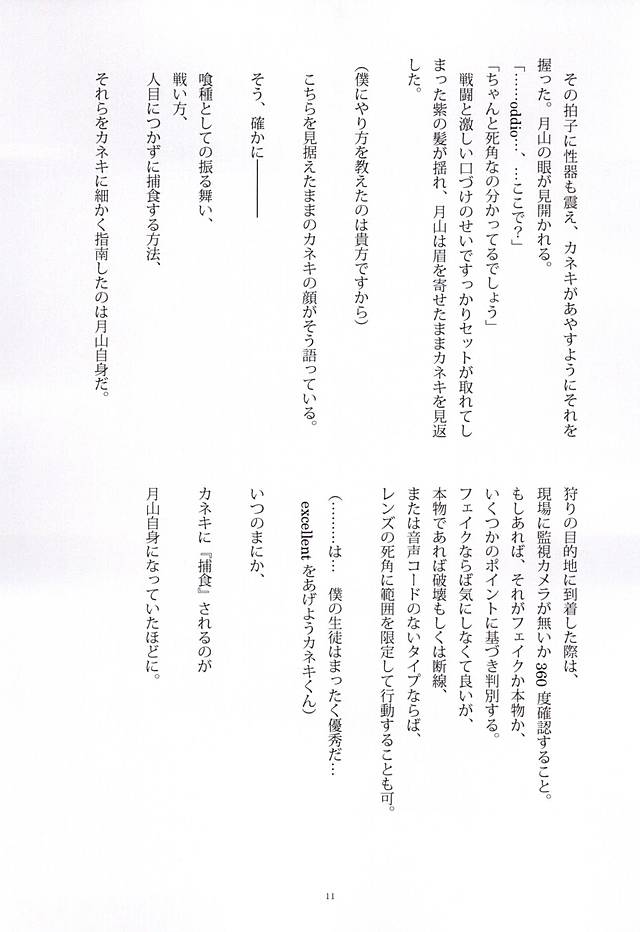 その拍子に性器も震え、カネキがあやすようにそれを
握った。月山の眼が見開かれる。
「……oddio…、…ここで？」
「ちゃんと死角なの分かってるでしょう」
戦闘と激しい口づけのせいですっかりセットが取れてし
まった紫の髪が揺れ、月山は眉を寄せたままカネキを見返
した。
(僕にやり方を教えたのは貴方ですから)
こちらを見据えたままのカネキの顔がそう語っている。
そう、確かに――――
喰種としての振る舞い、
戦い方、
人目につかずに捕食する方法、
それらをカネキに細かく指南したのは月山自身だ。
狩りの目的地に到着した際は、
現場に監視カメラが無いか360度確認すること。
もしあれば、それがフェイクか本物か、
いくつかのポイントに基づき判別する。
フェイクならば気にしなくて良いが、
本物であれば破壊もしくは断線、
または音声コードのないタイプならば、
レンズの死角に範囲を限定して行動することも可。
(………は… 僕の生徒はまったく優秀だ…
excellentをあげようカネキくん)
いつのまにか、
カネキに『捕食』されるのが
月山自身になっていたほどに。
11